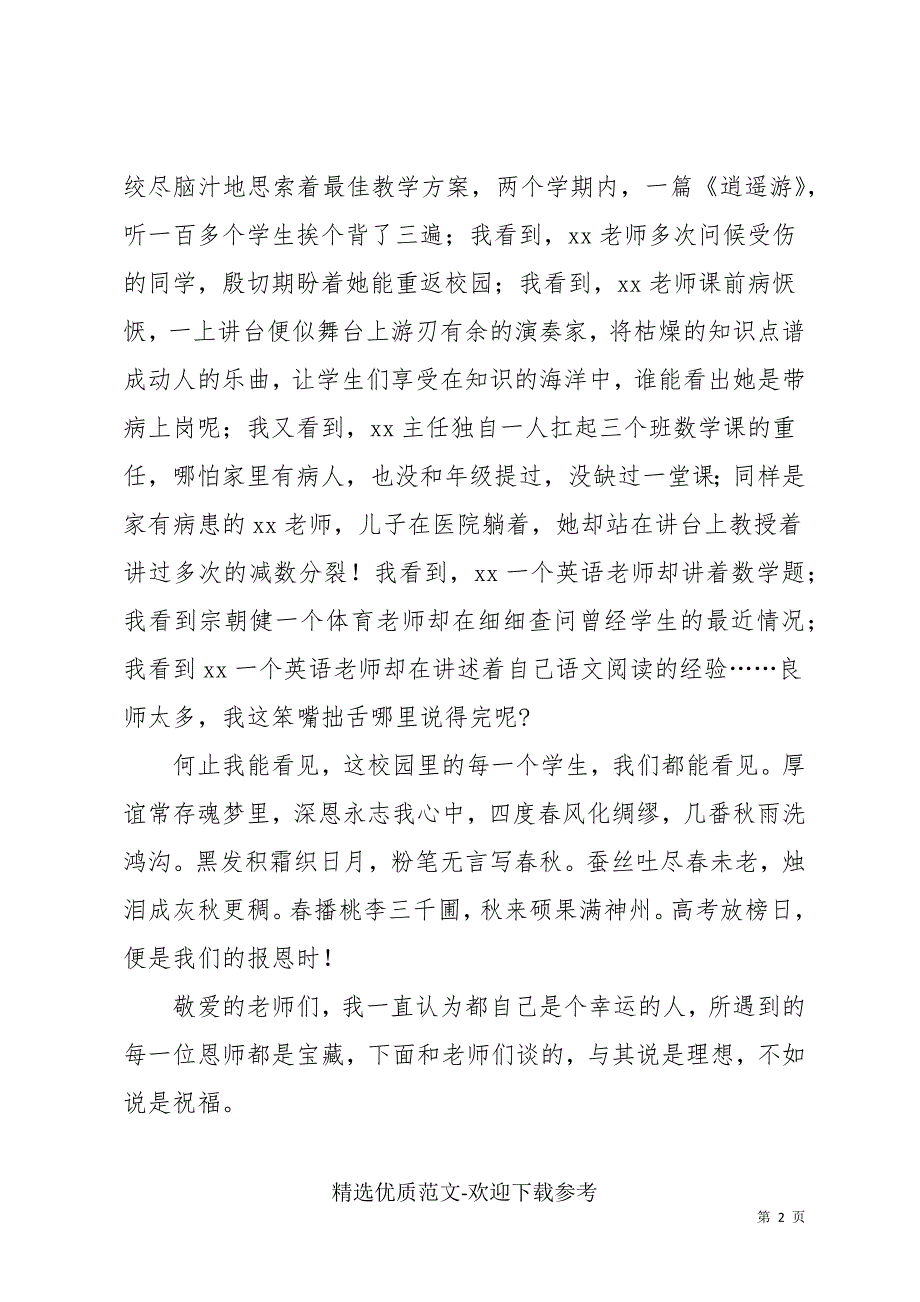 绞尽脑汁地思索着最佳教学方案，两个学期内，一篇《逍遥游》，
听一百多个学生挨个背了三遍；我看到，xx 老师多次问候受伤
的同学，殷切期盼着她能重返校园；我看到，xx 老师课前病恹
恹，一上讲台便似舞台上游刃有余的演奏家，将枯燥的知识点谱
成动人的乐曲，让学生们享受在知识的海洋中，谁能看出她是带
病上岗呢；我又看到，xx 主任独自一人扛起三个班数学课的重
任，哪怕家里有病人，也没和年级提过，没缺过一堂课；同样是
家有病患的 xx 老师，儿子在医院躺着，她却站在讲台上教授着
讲过多次的减数分裂！我看到，xx 一个英语老师却讲着数学题；
我看到宗朝健一个体育老师却在细细查问曾经学生的最近情况；
我看到 xx 一个英语老师却在讲述着自己语文阅读的经验……良
师太多，我这笨嘴拙舌哪里说得完呢?
何止我能看见，这校园里的每一个学生，我们都能看见。厚
谊常存魂梦里，深恩永志我心中，四度春风化绸缪，几番秋雨洗
鸿沟。黑发积霜织日月，粉笔无言写春秋。蚕丝吐尽春未老，烛
泪成灰秋更稠。春播桃李三千圃，秋来硕果满神州。高考放榜日，
便是我们的报恩时！
敬爱的老师们，我一直认为都自己是个幸运的人，所遇到的
每一位恩师都是宝藏，下面和老师们谈的，与其说是理想，不如
说是祝福。
精选优质范文-欢迎下载参考
第 2 页